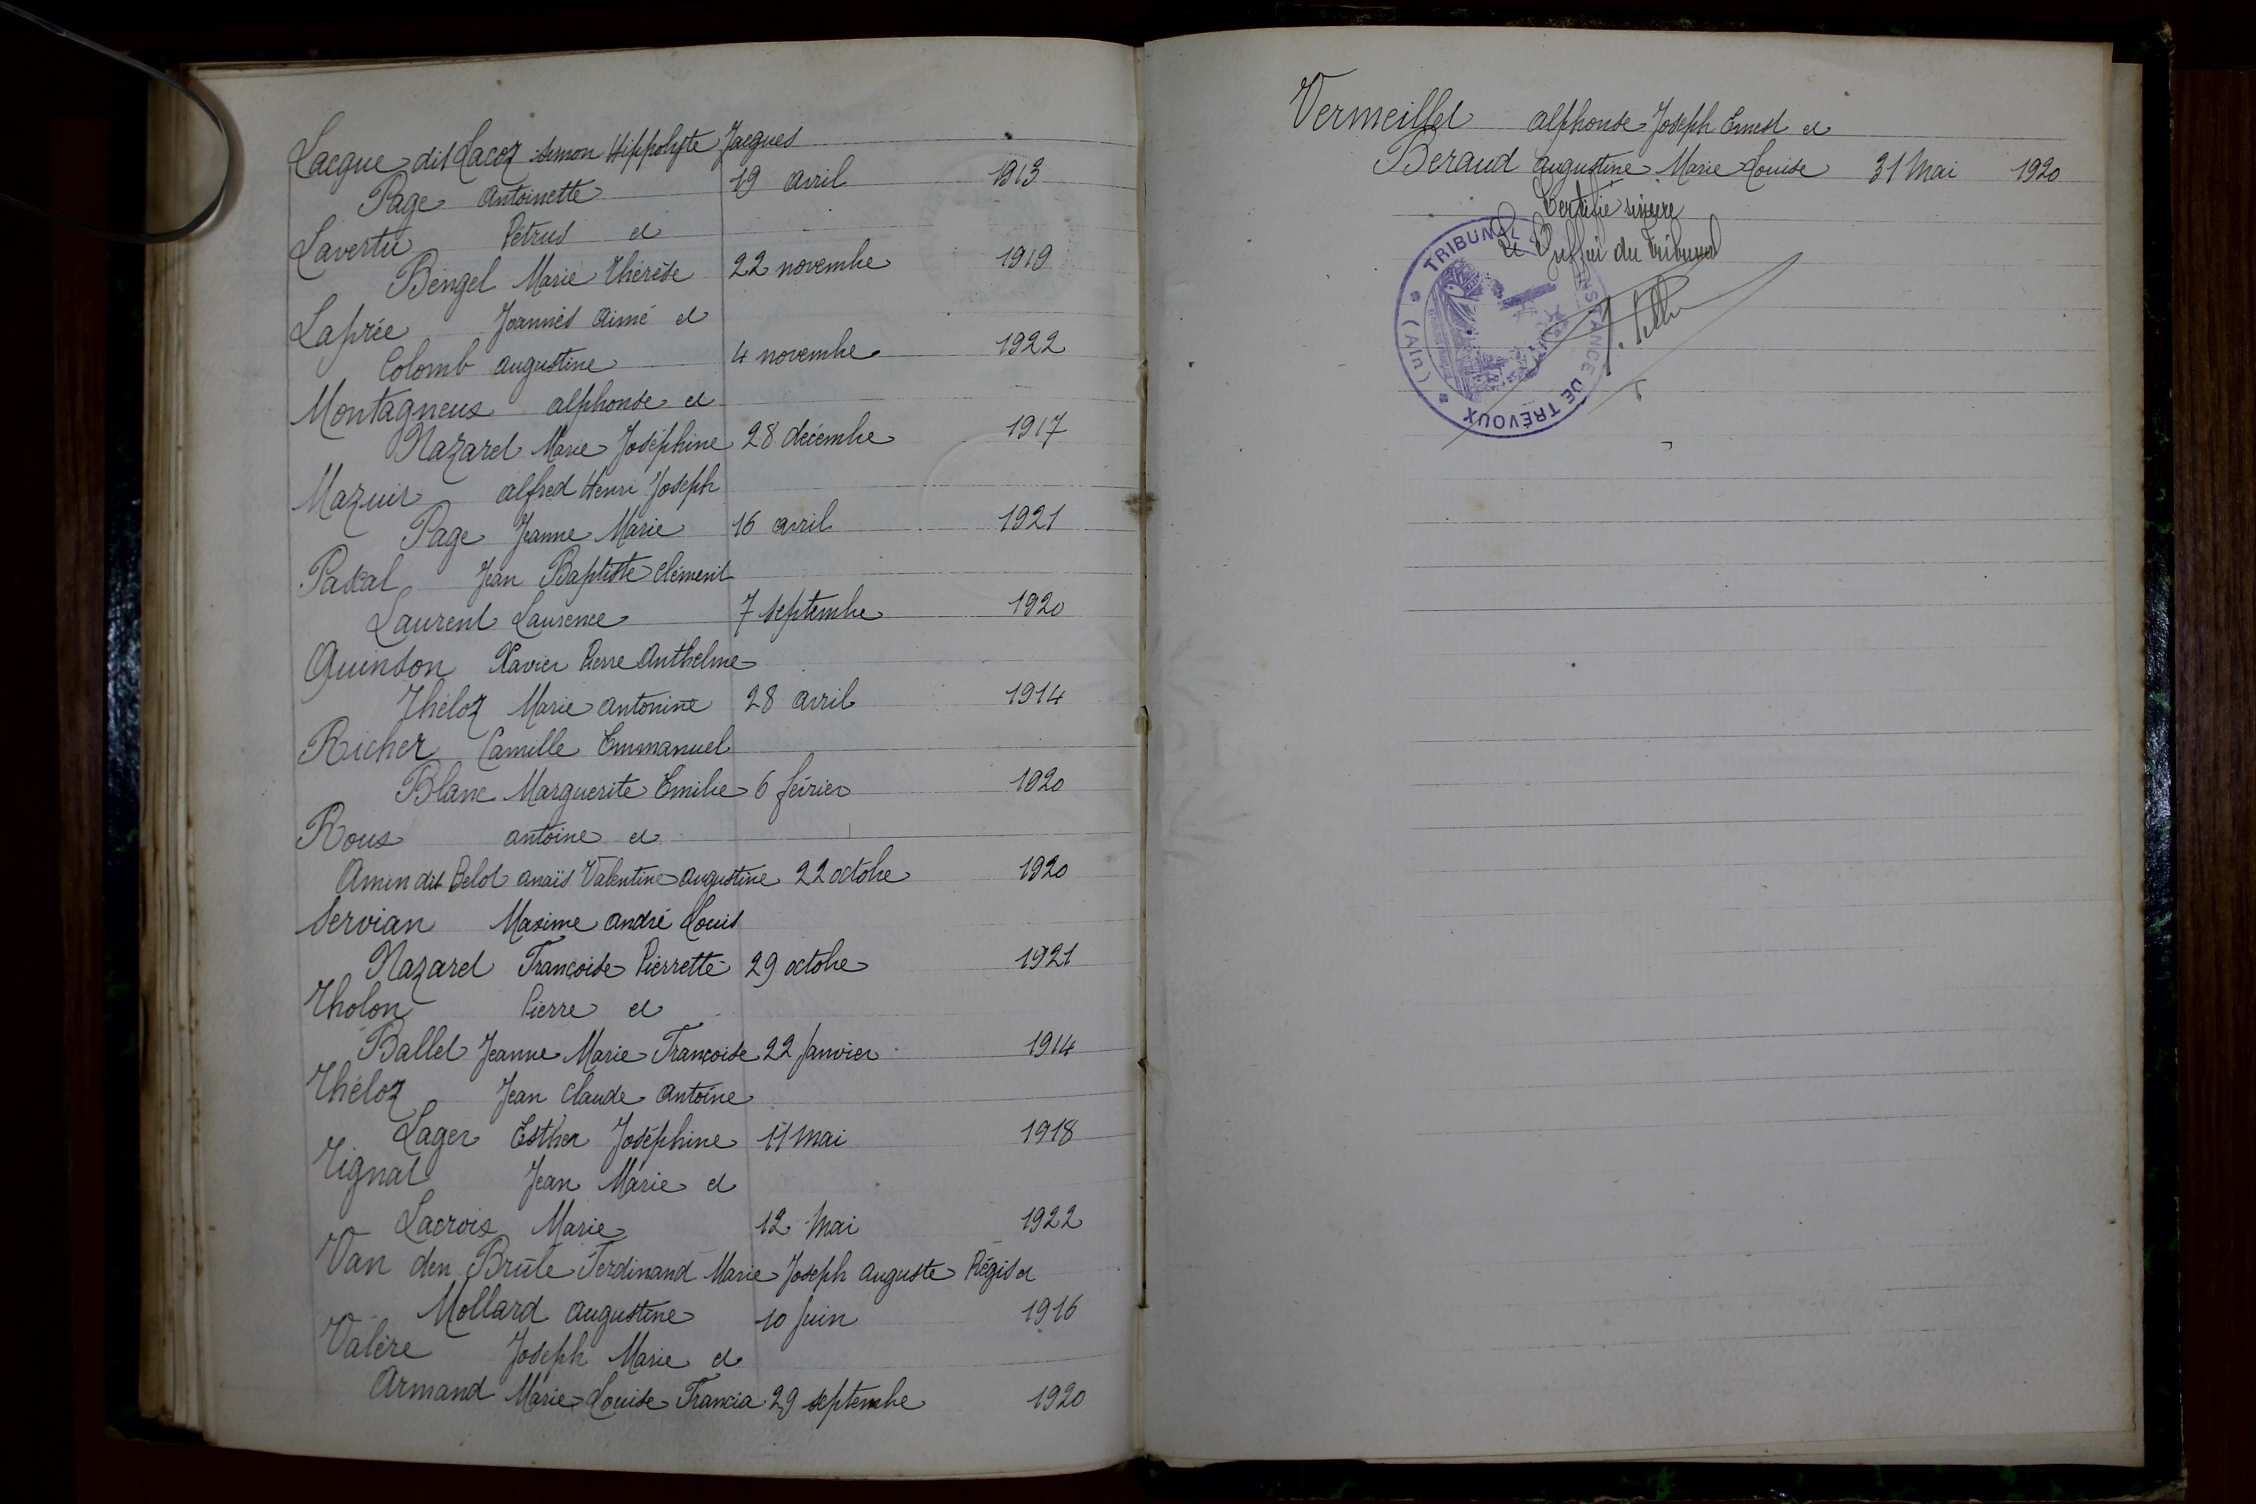 Lacque dit Lacoz Simon Hippolyte Jacques
Page Antoinette 19 avril 1913
Lavertu Pétrus et
Bengel Marie Thérèse 22 novembre 1919
Laprée Joannès Aimé et
Colomb Augustine 4 novembre 1922
Montagneux Alphonse et
Nazaret Marie Joséphine 28 décembre 1917
Mazuir Alfred Henri Joseph
Page Jeanne Marie 16 avril 1921
Pascal Jean Baptiste Clément
Laurent Laurence 7 septembre 1920
Quinson Xavier Pierre Anthelme
Théloz Marie Antonine 28 avril 1914
Richer Camille Emmanuel
Blanc Marguerite Emilie 6 février 1920
Roux Antoine et
Amen dit Belot Anaïs Valentine Augustine 22 octobre 1920
Servian Maxime André Louis
Nazaret Françoise Pierrette 29 octobre 1921
Tholon Pierre et
Ballet Jeanne Marie Françoise 22 Janvier 1914
Théloz Jean Claude Antoine
Lager Esther Joséphine 11 Mai 1918
Tignat Jean Marie et
Lacroix Marie 12 Mai 1922
Van den Brûle Ferdinand Marie Joseph Auguste Régis et
Mollard Augustine 10 Juin 1916
Valère Joseph Marie et
Armand Marie Louise Francia 29 septembre 1920
Vermeillet Alphonse Joseph Ernest et
Beraud Augustine Marie Louise 31 Mai 1920
Certifié sincère
Le Greffier du Tribunal
TRIBUNAL INSTANCE DE TRÉVOUX (Ain)